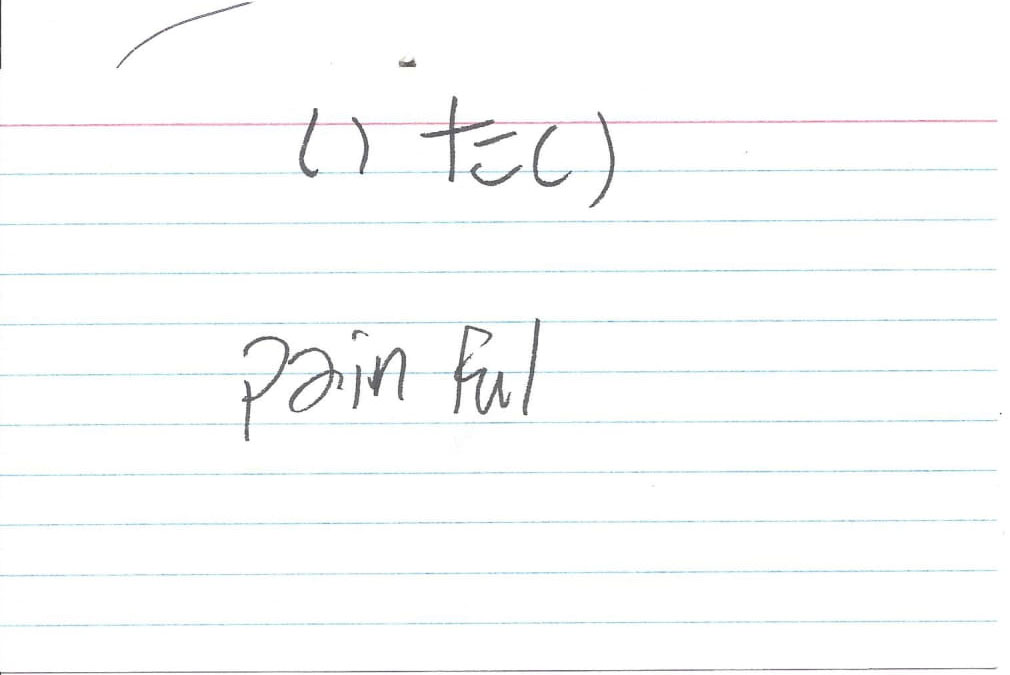 いたい
pain ful